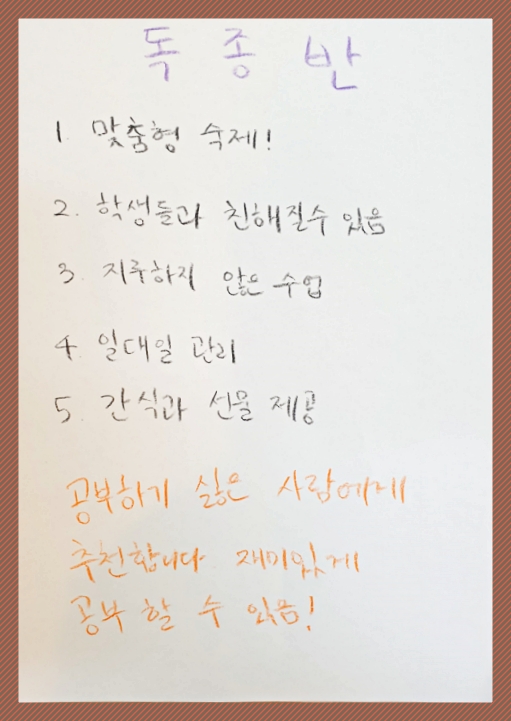 독종반
1. 맞춤형 숙제!
2. 학생들과 친해질수 있음
3. 지루하지 않은 수업
4. 일대일 관리
5. 간식과 선물 제공
공부하기 싫은 사람에게
추천합니다 재미있게
공부 할 수 있음!